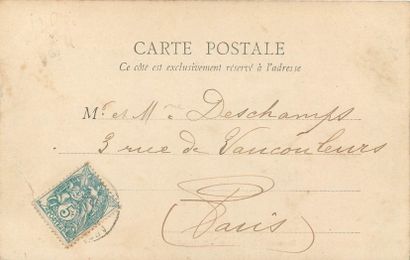 CARTE POSTALE
Ce côté est exclusivement réservé à l'adresse
Mr. et Mme. Deschamps
3 rue de Vaucouleurs
Paris
5